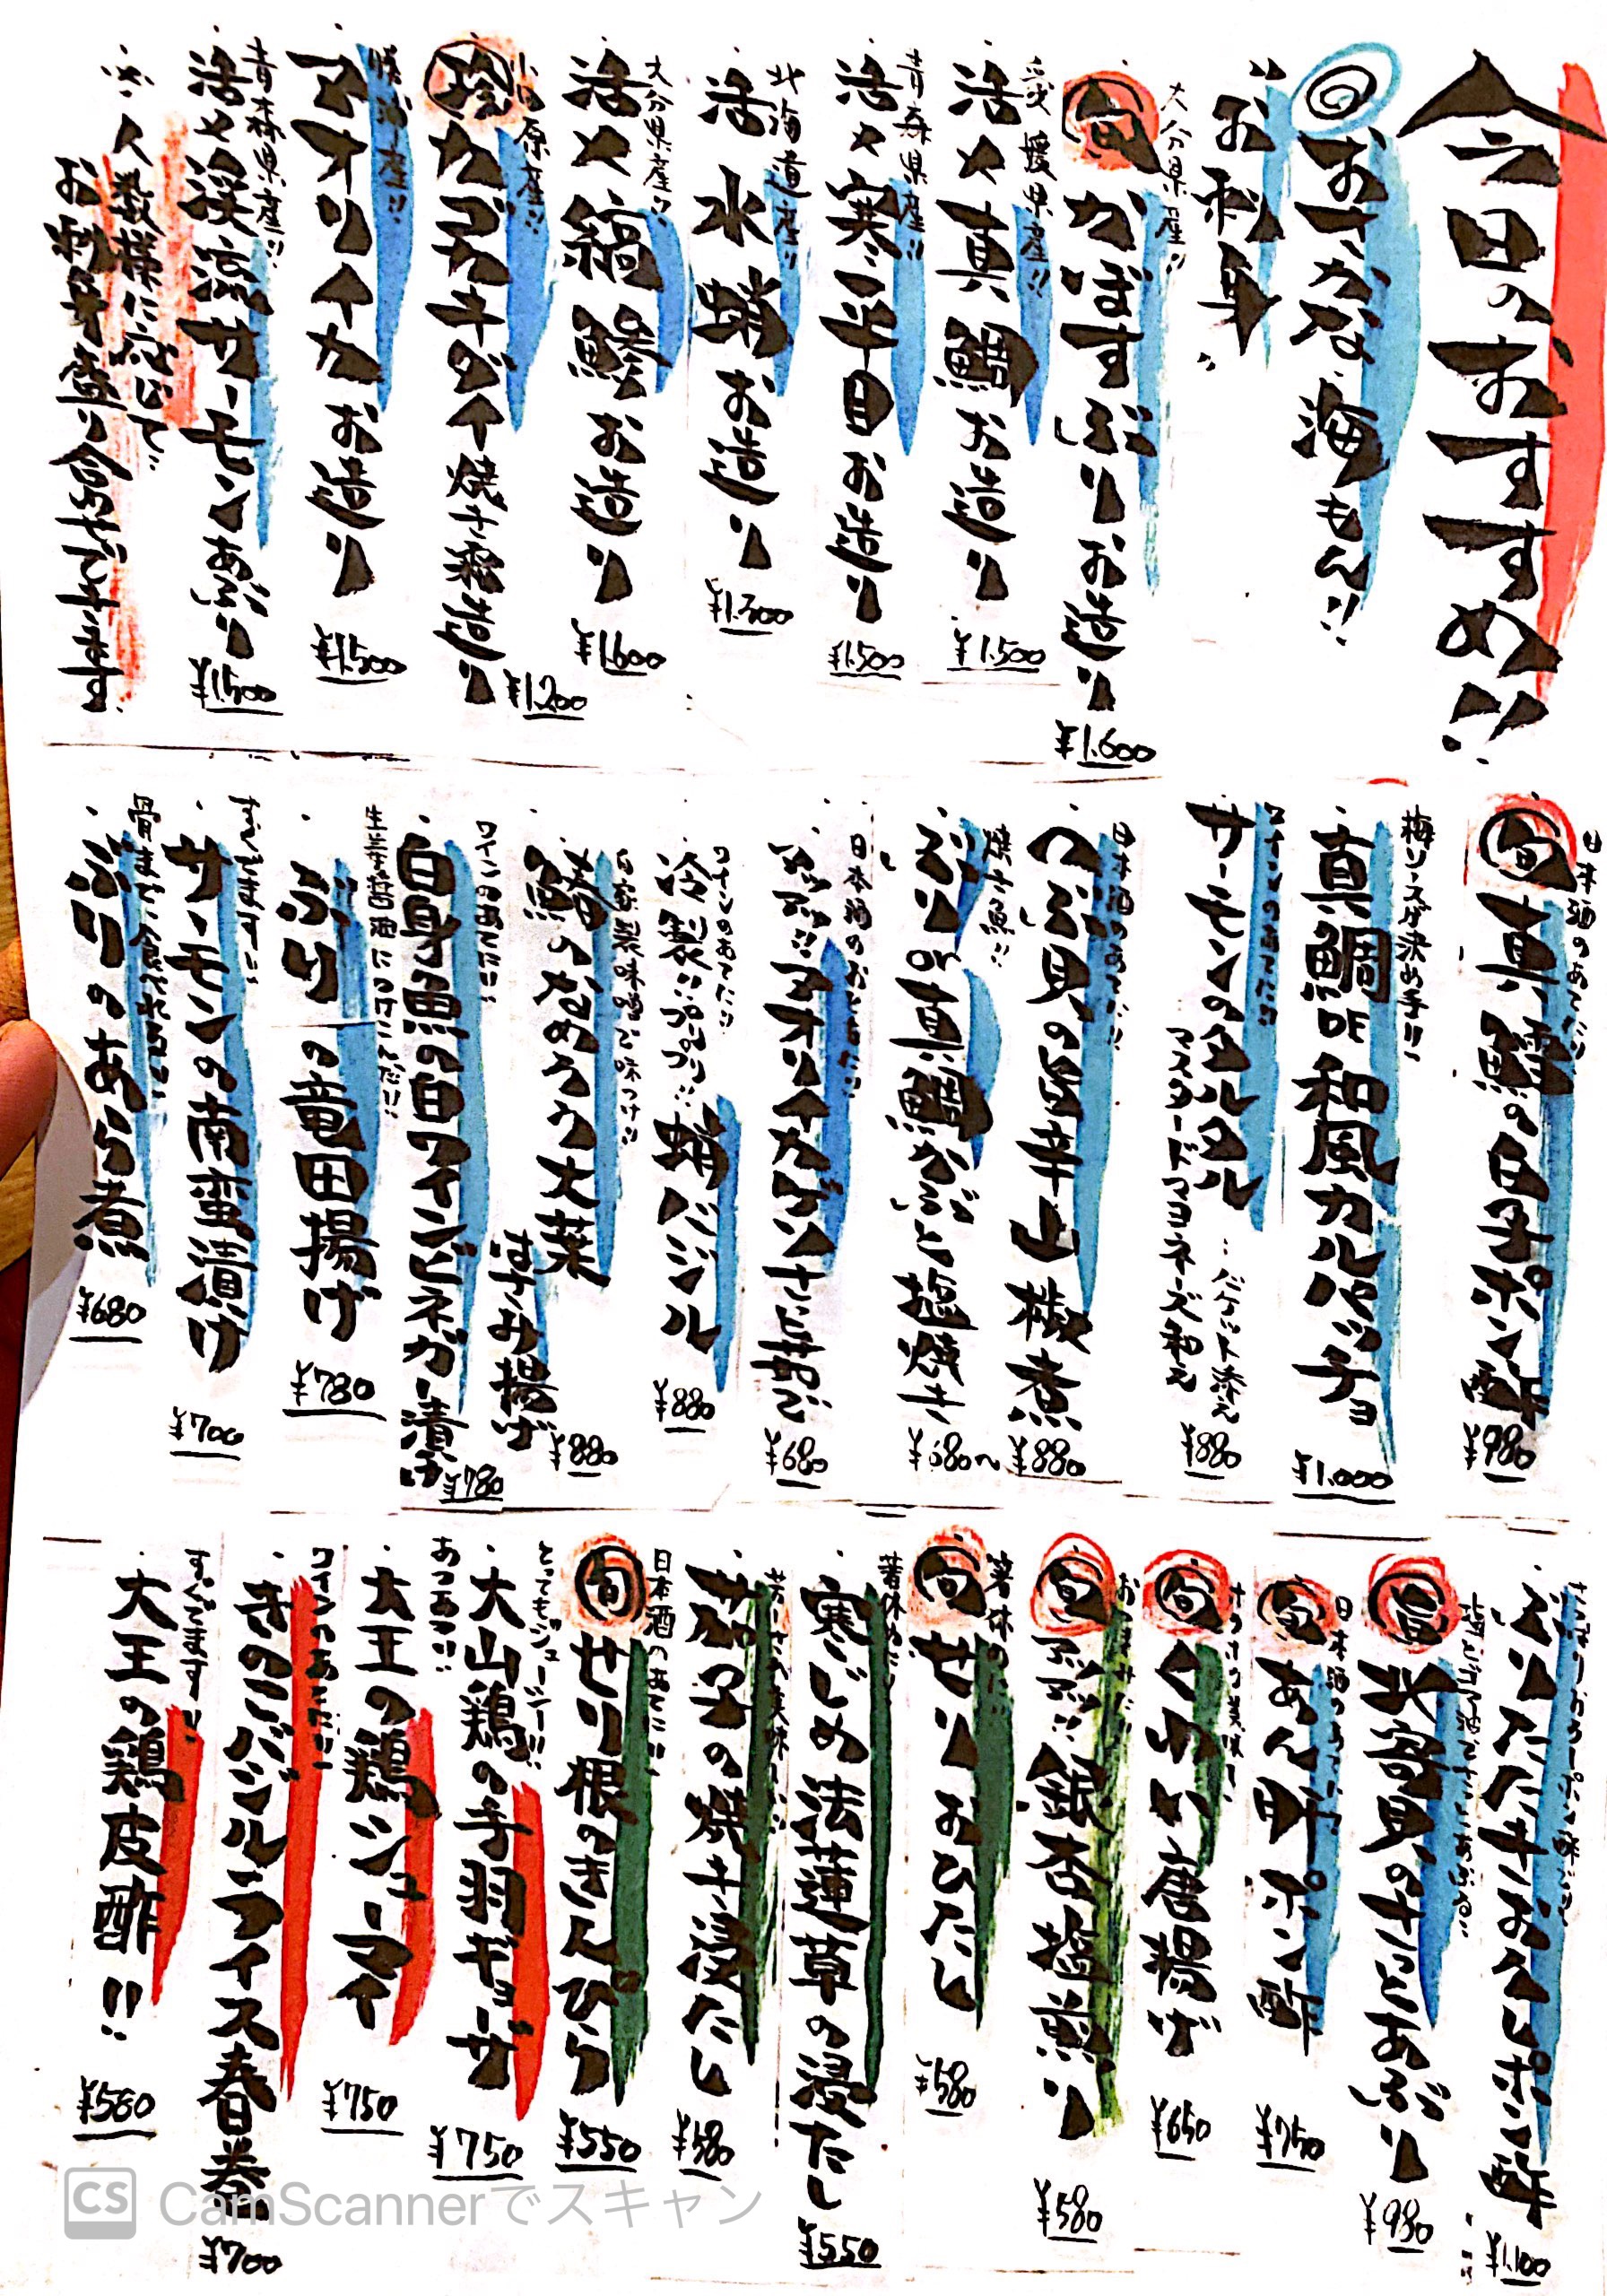 今日のおすすめ!!
◎おすかな海もん!!
"お刺身"
大分県産!!
旬 かぼすぶりお造り
¥1.600
愛媛県産!!
活〆真鯛お造り
¥1.500
青森県産!!
活〆寒平目お造り
¥1.500
北海道産!!
活水蛸お造り
¥1.300
大分県産!!
活〆縞鯵お造り
¥1.600
小田原産!!
カゴカキダイ焼き霜造り
¥1.200
アオリイカお造り
¥1.500
青森県産!!
活〆渓流サーモンあぶり
¥1.500
※人数様に応じて
お刺身盛り合わせできます
日本酒のあてに!!
旬 真鱈の白子ポン酢
¥980
梅ソースが決め手!!
真鯛の和風カルパッチョ
¥1.000
ワインのあてに!!
サーモンのタルタル
マスタードマヨネーズ和え
バケット添え
¥880
日本酒のあてに!!
つぶ貝の旨辛山椒煮
¥880
焼き魚!!
ぶりor真鯛かぶと塩焼き
¥680〜
日本酒のおともに!!
アオリイカゲソナンコツ
¥680
ワインのあてに!!
冷製!!プリップリ!!蛸バジル
¥880
自家製味噌で味つけ!!
鯵のなめろう大葉
はさみ揚げ
¥880
ワインのあてに!!
白身魚の白ワインビネガー漬け
¥780
生姜醤油につけこんだ!!
ぶりの竜田揚げ
¥780
すぐでます!!
サーモンの南蛮漬け
¥700
骨まで食べれる!!
ぶりのあら煮
¥680
ぶりたたきおろしポン酢
¥1.100
旬 北寄貝のさっとあぶり
¥980
日本酒のあてに!!
旬 あん肝ポン酢
¥750
旬 くわい唐揚げ
¥650
旬 銀杏塩煎り
¥580
箸休めに!!
旬 せりおひたし
¥580
箸休めに!!
寒じめ法蓮草の浸たし
¥550
茄子の焼き浸たし
¥580
日本酒のあてに!!
旬 せり根のきんぴら
¥550
とってもジューシー!!
大山鶏の手羽ギョーザ
¥750
あつあつ!!
大王の鶏シューマイ
¥750
ワインのあてに!!
きのこバジルライス春巻
¥700
すぐでます!!
大王の鶏皮酢!!
¥580
CS CamScannerでスキャン